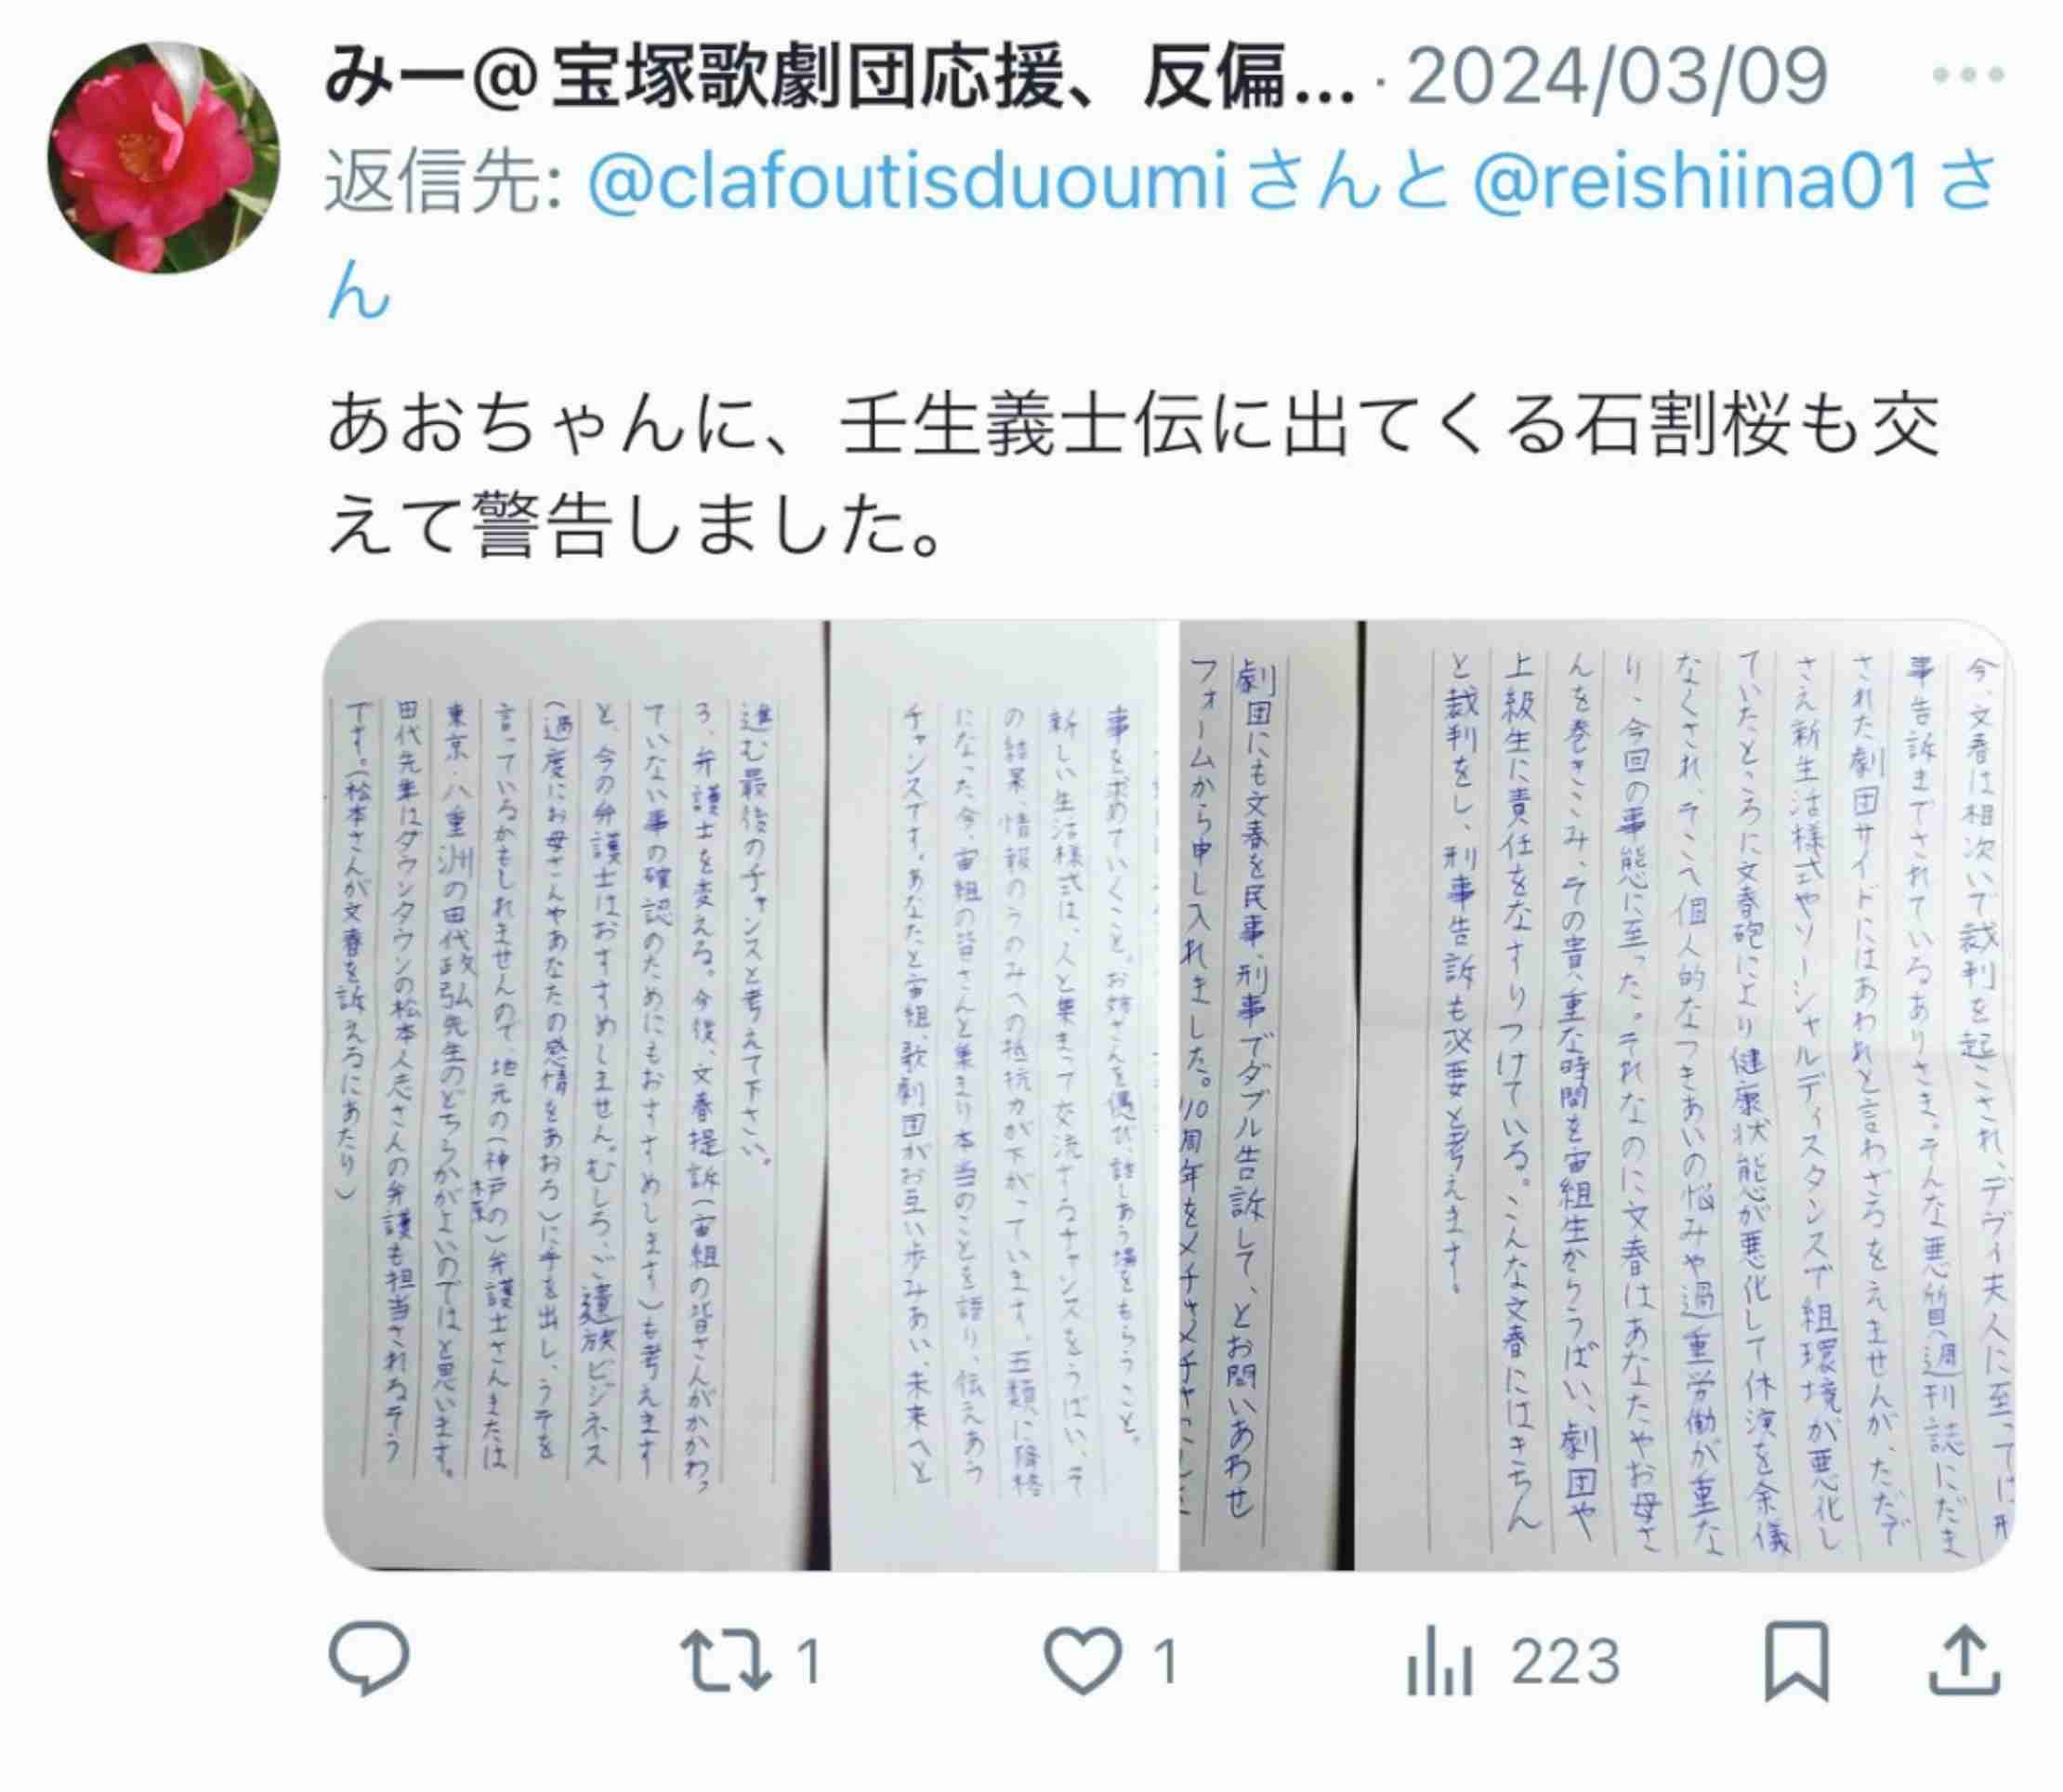 みー@宝塚歌劇団応援、反偏... · 2024/03/09
返信先: @clafoutisduoumiさんと @reishiina01さ
ん
あおちゃんに、壬生義士伝に出てくる石割桜も交
えて警告しました。
今、文春は相次いで裁判を起こされ、デヴィ夫人に至っては刑
事告訴までされているありさま。そんな悪質週刊誌にだま
された劇団サイドにはあわれと言わざるをえませんが、ただで
さえ新生活様式やソーシャルディスタンスで組環境が悪化し
ていたところに文春砲により健康状態が悪化して休演を余儀
なくされ、そこへ個人的なつきあいの悩みや過重労働が重な
り、今回の事態に至った。それなのに文春はあなたやお母さ
んを巻きこみ、その貴重な時間を宙組生からうばい、劇団や
上級生に責任をなすりつけている。こんな文春にはきちん
と裁判をし、刑事告訴も必要と考えます。
劇団にも文春を民事、刑事でダブル告訴して、とお問いあわせ
フォームから申し入れました。110周年をメチャメチャにした
事を求めていくこと。お姉さんを偲び、話しあう場をもらうこと。
新しい生活様式は、人と集まって交流するチャンスをうばい、そ
の結果、情報のうのみへの抵抗力が下がっています。五類に降格
になった今、宙組の皆さんと集まり本当のことを語り、伝えあう
チャンスです。あなたと宙組、歌劇団がお互い歩みあい、未来へと
進む最後のチャンスと考えて下さい。
3、弁護士を変える。今後、文春提訴(宙組の皆さんがかかわっ
ていない事の確認のためにもおすすめします)も考えます
と、今の弁護士はおすすめしません。むしろ、ご遺族ビジネス
(過度にお母さんやあなたの感情をあおる)に手を出し、うそを
言っているかもしれませんので、地元の(神戸の)弁護士さんまたは
東京・八重洲の田代政弘先生のどちらかがよいのではと思います。
田代先生はダウンタウンの松本人志さんの弁護も担当されるそう
です。(松本さんが文春を訴えるにあたり)
1
1
223